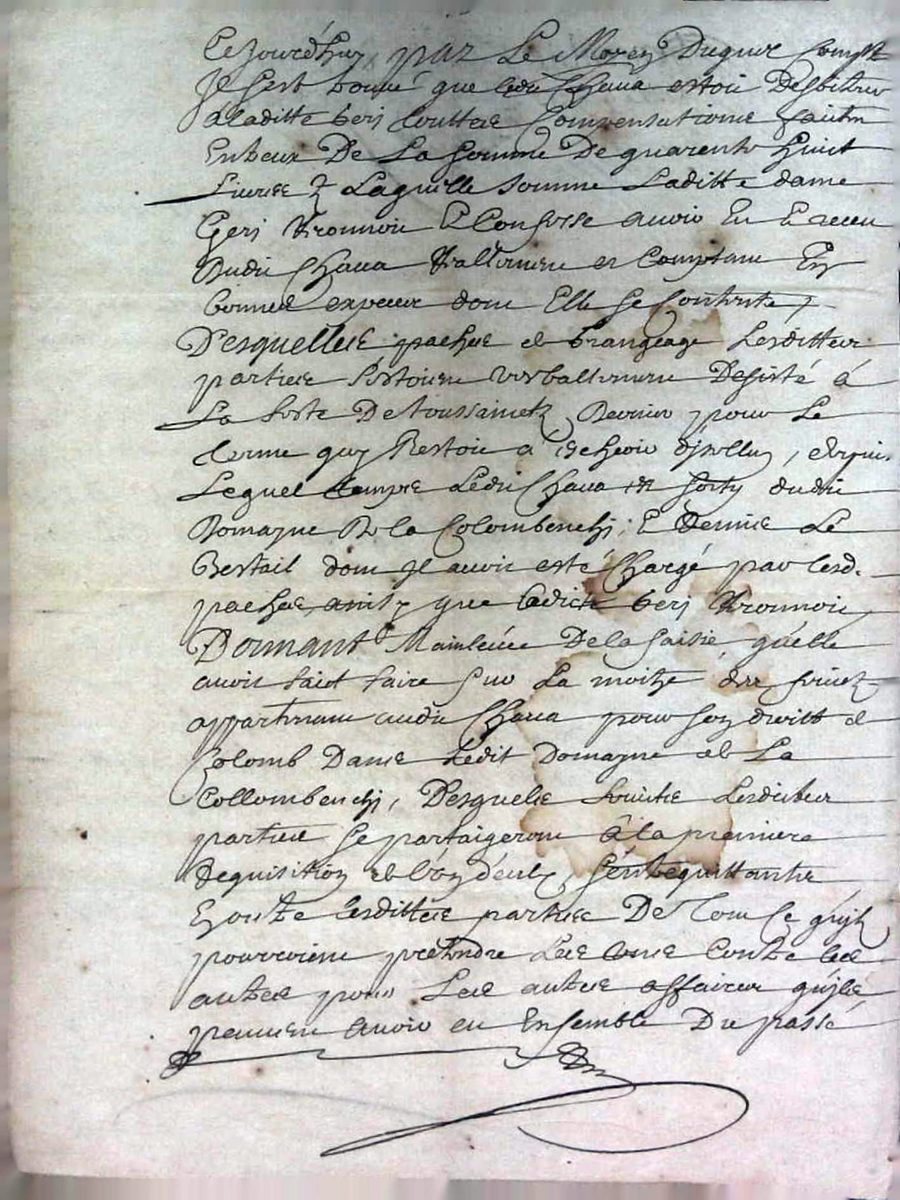 Ce jourd'huy par Le Moyen Duquel Compt
Il s'est trouvé que ledit Chava estoit
a laditte Geri touttes Compensations faittes
Entreux De La somme De quarente huict
Livres Laquelle somme Laditte dame
Geri Confesse avoir Eu Et Receu
Dudit Chava Reallement et Comptant En
bonnes especes dont Elle se Contente
Desquelles paches et Grangeage Lesdittes
parties s'estoient verballement Desisté à
La feste De toussainctz Dernier pour Le
terme quy Restoit à d'jcelluy, depuis
Lequel temps Ledit Chava est sorty dudit
Domayne De la Colombenchj, Et Remis Le
Bestail dont Il avoit esté Chargé par lesd.
paches, que ladicte Geri
Donnant Mainlevée De la saisie, qu'elle
avoit faict faire sur La moitié des fruictz
appartenant audit Chava pour son droict de
Colomb Dans Ledit Domayne de La
Collombenchj, Desquels fruitz Lesdittes
parties se partaigeront à la premiere
Requisition de l'un d'eulx, s'entrequittantz
En outre lesdittes parties De Tout Ce qu'ilz
pourroient pretendre Les uns Contre les
autres pour Les autres affaires qu'ils
peuvent avoir eu Ensemble Du passé